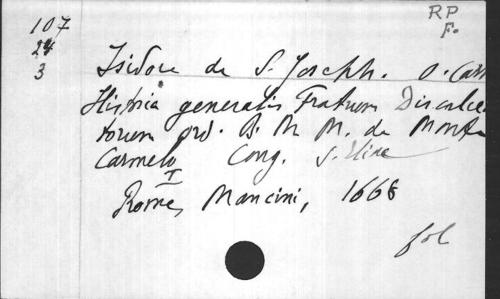 107
24
3
RP
F.
Isidore de S. Joseph. O. Carm
Historia generalis Fratrum Discalcea
torum ord. B. M. de Monte
Carmelo Cong. S. Eliae
I
Rome, Mancini, 1668
fol